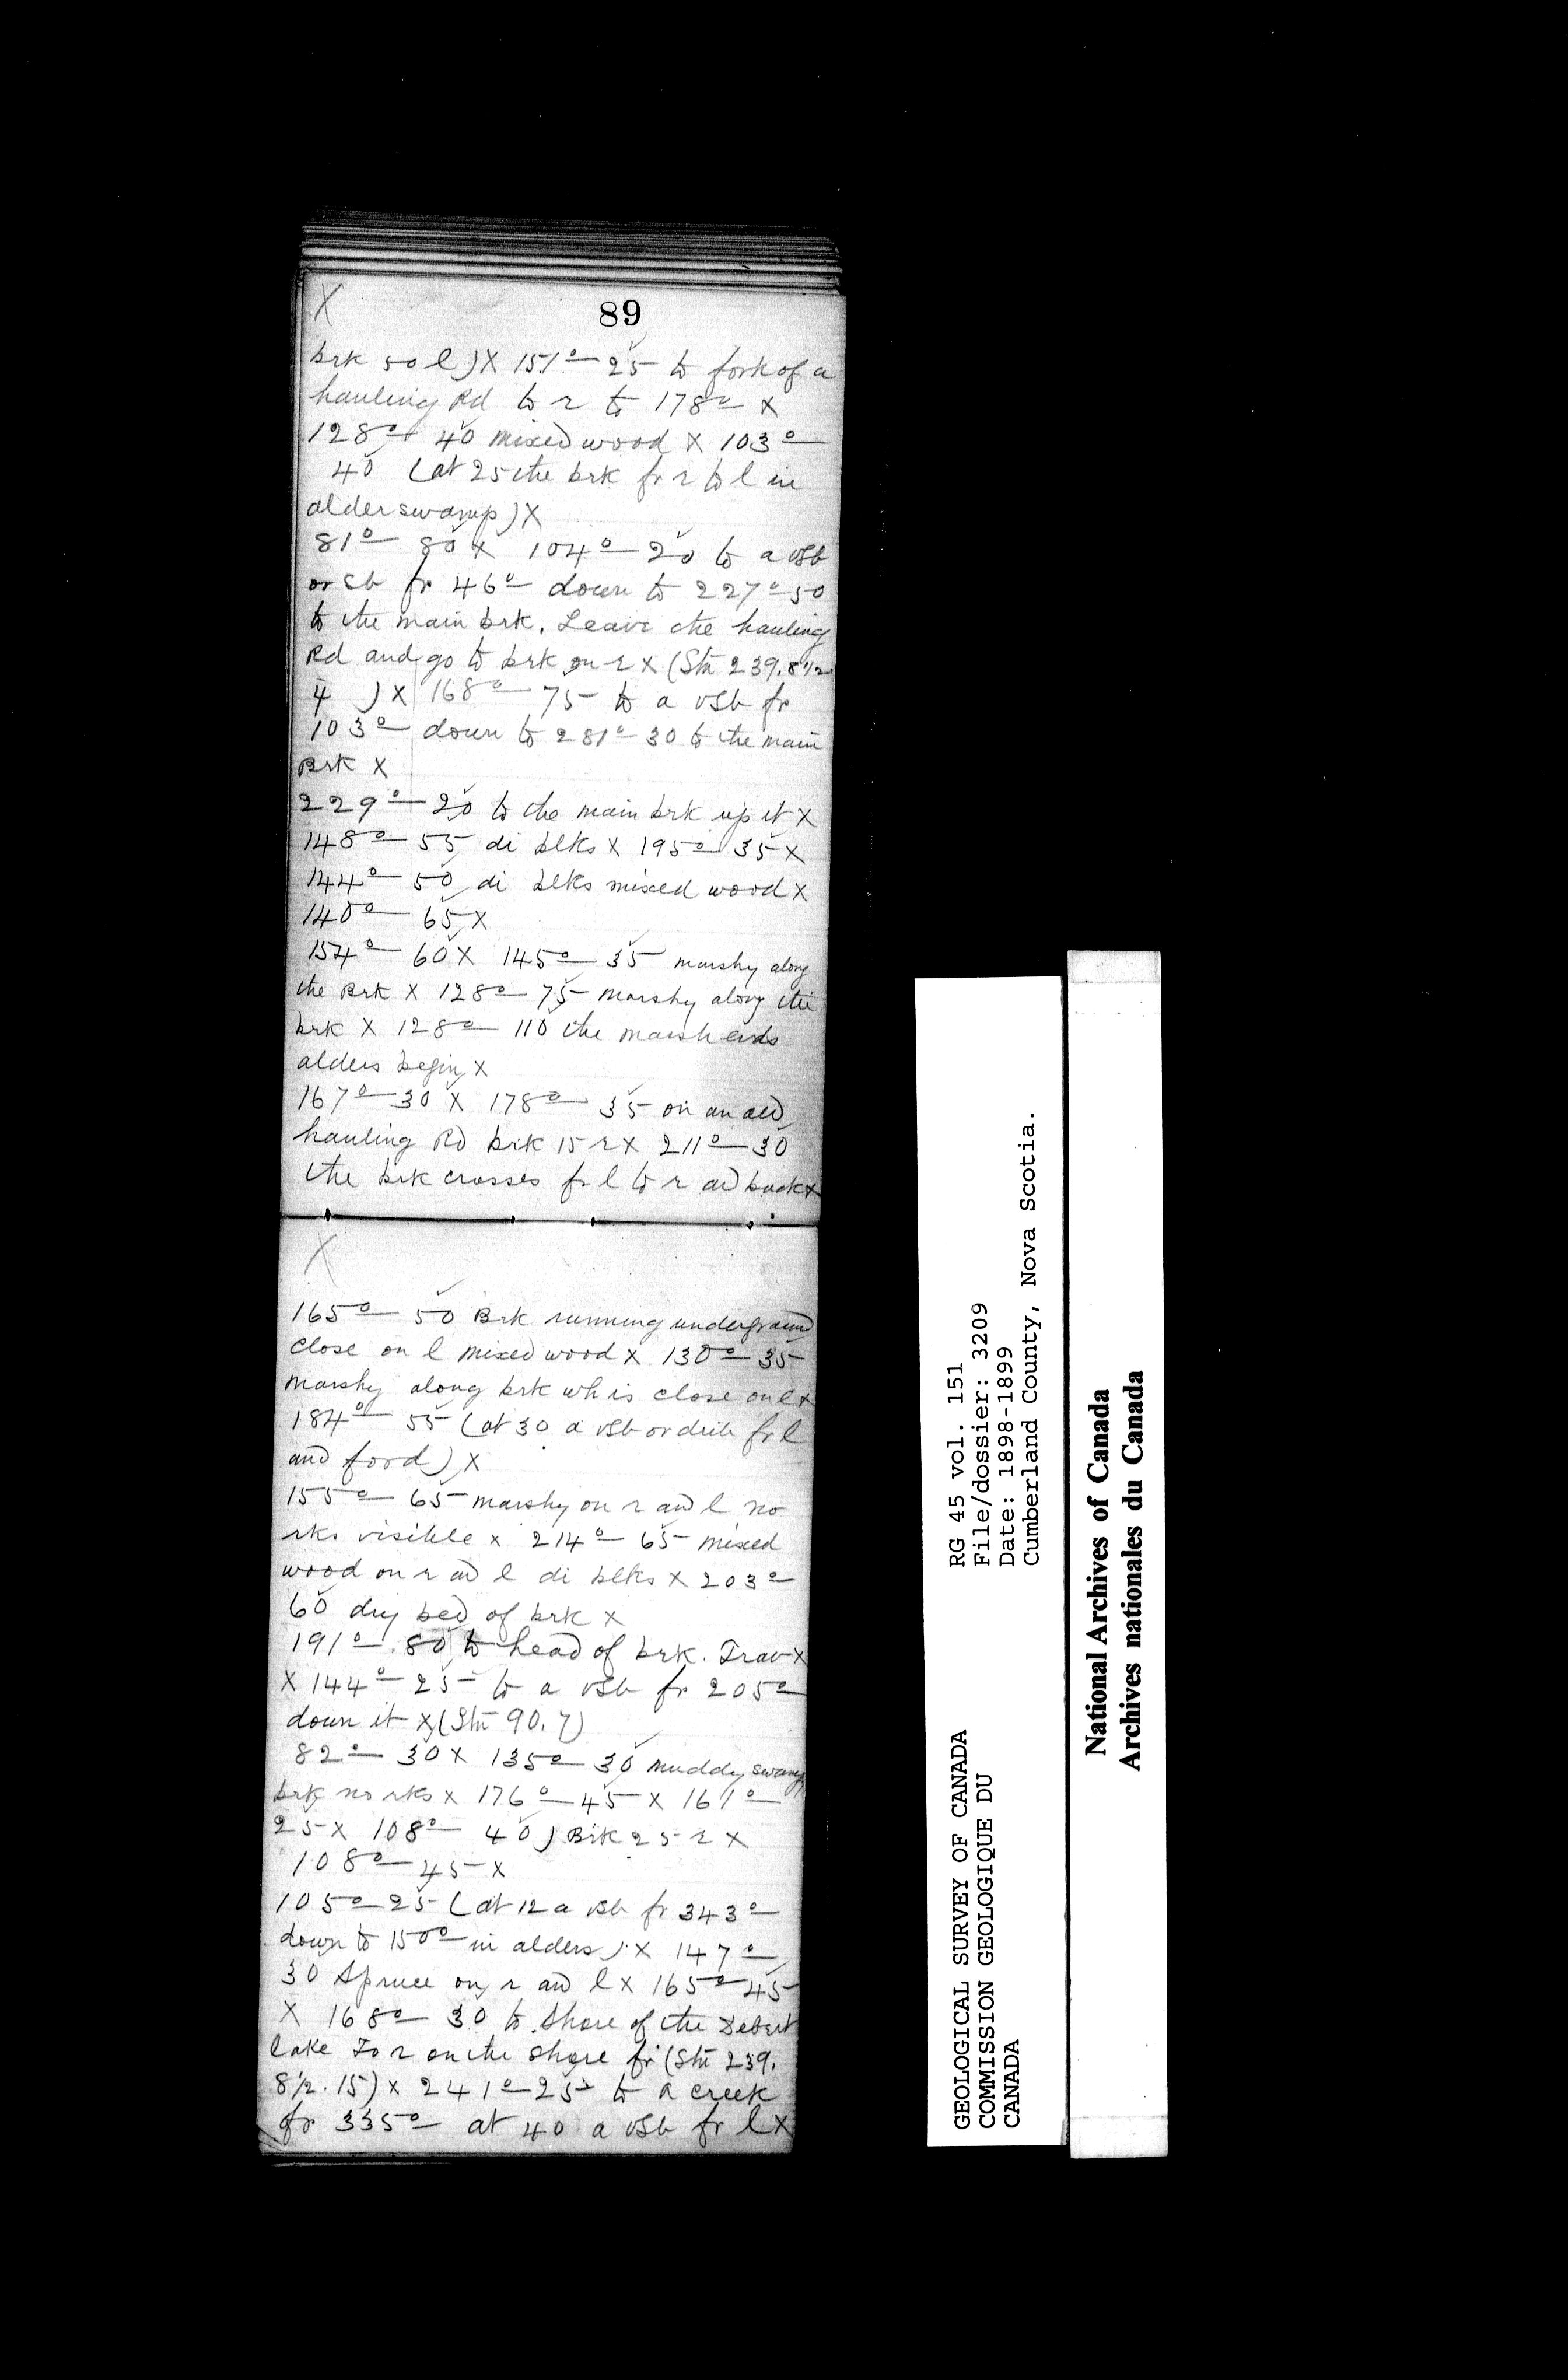 X
89
brk 50 l) X 151° — 25 to fork of a
hauling Rd to r to 178° X
128° — 40 mixed wood X 103° —
40 (at 25 the brk fr r to l in
alder swamp) X
81° — 80 X 104° — 20 to a vSb
or Sb fr 46° down to 227° — 50
to the main brk. Leave the hauling
Rd and go to brk on r X (Stn 239.8 1/2
4 ) X 168° — 75 to a vSb fr
103° — down to 281° — 30 to the main
Brk X
229° — 20 to the main brk up it X
148° — 55 di blks X 195° — 35 X
144° — 50 di blks mixed wood X
140° — 65 X
154° — 60 X 145° — 35 marshy along
the Brk X 128° — 75 marshy along the
brk X 128° — 110 the marsh ends
alders begin X
167° — 30 X 178° — 35 on an old
hauling Rd brk 15 r X 211° — 30
the brk crosses fr l to r and back X
X
165° — 50 Brk running underground
close on l mixed wood X 130° — 35
marshy along brk wh is close on l X
184° — 55 (at 30 a vSb or fr l
and food) X
155° — 65 marshy on r and l no
rks visible X 214° — 65 mixed
wood on r and l di blks X 203° —
60 dry bed of brk X
191° — 80 to head of brk. Trav X
X 144° — 25 to a vSb fr 205° —
down it X (Stn 90.7)
82° — 30 X 135° — 30 muddy swampy
brk no rks X 176° — 45 X 161° —
25 X 108° — 40) Brk 25 r X
108° — 45 X
105° — 25 (at 12 a vSb fr 343° —
down to 150° — in alders) X 147° —
30 Spruce on r and l X 165° — 45
X 168° — 30 to Shore of the Debert
lake To r on the shore fr (Stn 239.
8 1/2.15) X 241° — 25 to a creek
fr 335° — at 40 a vSb fr l X
GEOLOGICAL SURVEY OF CANADA
COMMISSION GEOLOGIQUE DU
CANADA
RG 45 vol. 151
File/dossier: 3209
Date: 1898-1899
Cumberland County, Nova Scotia.
National Archives of Canada
Archives nationales du Canada